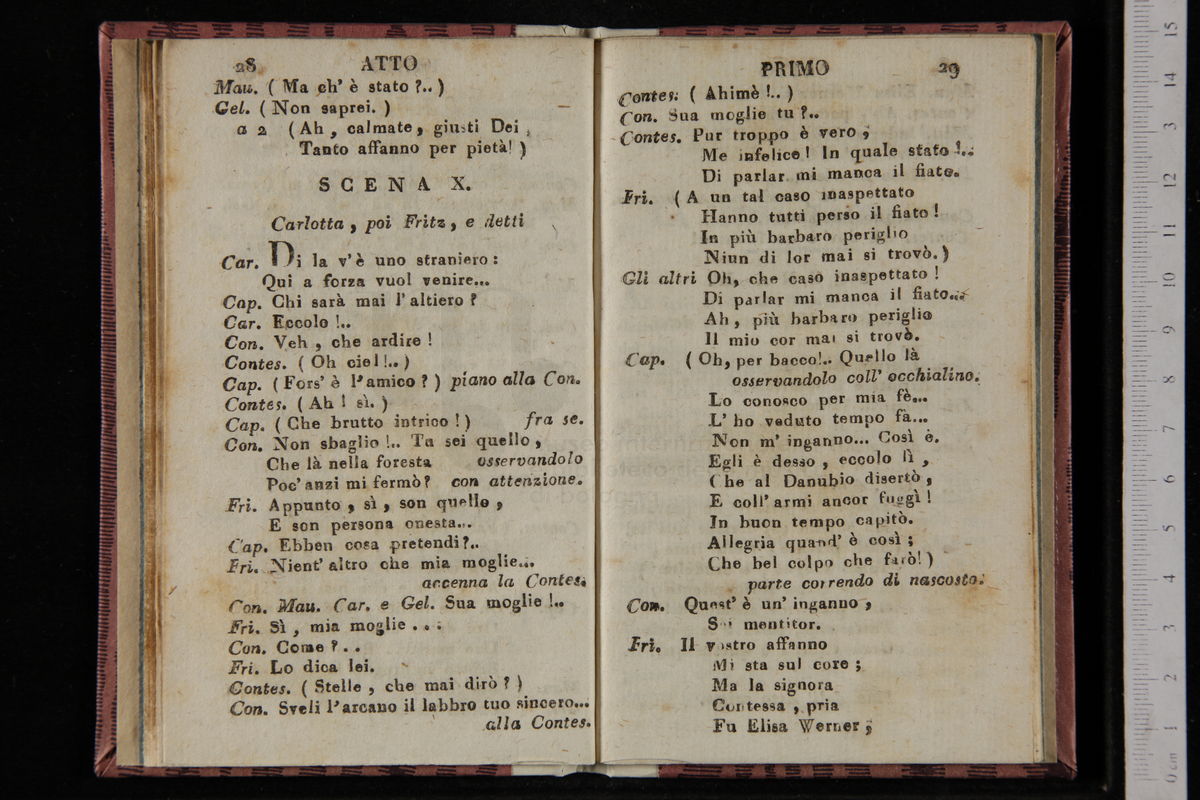 28 ATTO
Mau. ( Ma ch' è stato ?.. )
Gel. ( Non saprei. )
a 2 ( Ah , calmate, giusti Dei ,
Tanto affanno per pietà! )
SCENA X.
Carlotta , poi Fritz , e detti
Car. Di la v'è uno straniero :
Qui a forza vuol venire...
Cap. Chi sarà mai l' altiero ?
Car. Eccolo !..
Con. Veh , che ardire !
Contes. ( Oh ciel !.. )
Cap. ( Fors' è l'amico ? ) piano alla Con.
Contes. ( Ah ! sì. )
Cap. ( Che brutto intrico ! ) fra se.
Con. Non sbaglio !.. Tu sei quello ,
Che là nella foresta osservandolo
Poc' anzi mi fermò? con attenzione.
Fri. Appunto , sì , son quello ,
E son persona onesta...
Cap. Ebben cosa pretendi ?..
Fri. Nient' altro che mia moglie...
accenna la Contes.
Con. Mau. Car. e Gel. Sua moglie !..
Fri. Sì , mia moglie . . .
Con. Come ? . .
Fri. Lo dica lei.
Contes. ( Stelle , che mai dirò ? )
Con. Sveli l'arcano il labbro tuo sincero...
alla Contes.
PRIMO 29
Contes. ( Ahimè !.. )
Con. Sua moglie tu ?..
Contes. Pur troppo è vero ,
Me infelice ! In quale stato !..
Di parlar mi manca il fiato.
Fri. ( A un tal caso inaspettato
Hanno tutti perso il fiato !
In più barbaro periglio
Niun di lor mai si trovò. )
Gli altri Oh, che caso inaspettato !
Di parlar mi manca il fiato...
Ah , più barbaro periglio
Il mio cor mai si trovò.
Cap. ( Oh, per bacco!.. Quello là
osservandolo coll' occhialino.
Lo conosco per mia fè...
L' ho veduto tempo fà...
Non m' inganno... Così è.
Egli è desso , eccolo lì ,
Che al Danubio disertò ,
E coll' armi ancor fuggì !
In buon tempo capitò.
Allegria quand' è così ;
Che bel colpo che farò! )
parte correndo di nascosto.
Con. Quest' è un' inganno ,
Sei mentitor.
Fri. Il vostro affanno
Mi sta sul core ;
Ma la signora
Contessa , pria
Fu Elisa Werner ;